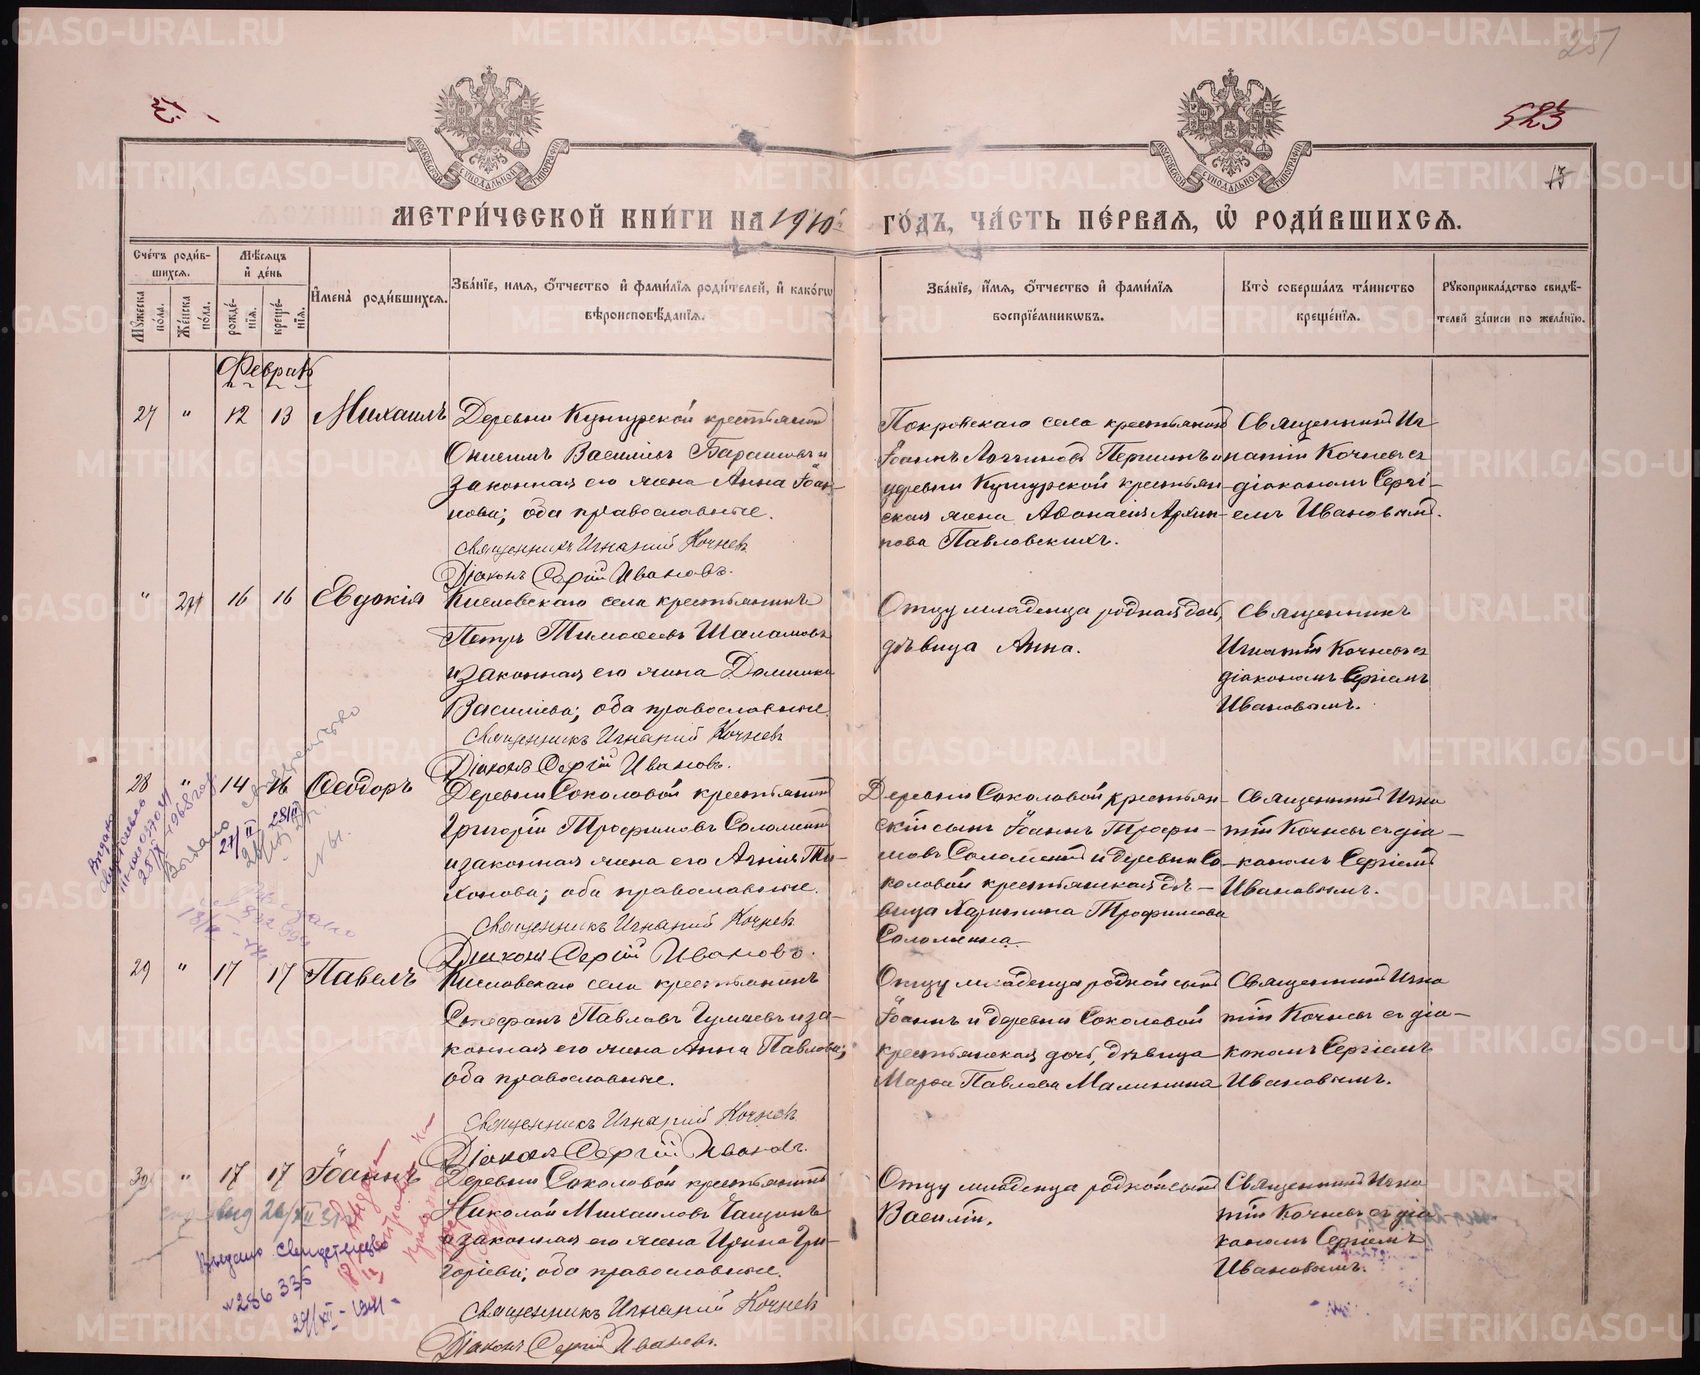 251
523
17
МОСКОВСКОЙ СѴНОДАЛЬНОЙ ТИПОГРАФІИ
МОСКОВСКОЙ СѴНОДАЛЬНОЙ ТИПОГРАФІИ
МЕТРИ́ЧЕСКОЙ КНИ́ГИ НА 1910 ГО́ДЪ, ЧА́СТЬ ПЕ́РВАЯ, Ѡ҆ РОДИ́ВШИХСѦ.
Сче́тъ роди́в-
шихсѧ.
Мѣ́сѧцъ
и҆ де́нь
Му́жеска
по́ла.
Же́нска
по́ла.
рожде́-
нїѧ.
креще́-
нїѧ.
И҆мена̀ роди́вшихсѧ.
Зва́нїе, имѧ, ѻ҆́тчество и҆ фами́лїѧ роди́телей, и҆ како́гѡ
вѣроисповѣ́данїѧ.
Зва́нїе, и҆́мѧ, ѻ҆́тчество и҆ фами́лїѧ
воспрїе́мникѡвъ.
Кто̀ соверша́лъ та́инство
креще́нїѧ.
Рꙋкоприкла́дство свидѣ́-
телей за́писи по жела́нїю.
Февраль
27 " 12 13 Михаилъ
Деревни Кунгурской крестьянинъ
Онисимъ Васильевъ и
законная его жена Анна Іоан-
нова; оба православные.
Священникъ Игнатий Кочневъ
Діаконъ Сергій Ивановъ.
Покровскаго села крестьянинъ
Іоаннъ Першинъ и
деревни Кунгурской крестьян-
ская жена Аѳанасія Архип-
пова Павловскихъ.
Священникъ Иг-
натій Кочневъ съ
діакономъ Сергі-
емъ Ивановымъ.
" 24 16 16 Евдокія
Кисловскаго села крестьянинъ
Петръ Тимоѳеевъ Шаламовъ
и законная его жена Домника
Васильева; оба православные.
Священникъ Игнатий Кочневъ
Діаконъ Сергій Ивановъ.
Отцу младенца родная дочь,
дѣвица Анна.
Священникъ
Игнатій Кочневъ съ
діакономъ Сергіемъ
Ивановымъ.
28 " 14 16 Ѳеодоръ
Деревни Соколовой крестьянинъ
Григорій Трофимовъ Соломеинъ
и законная жена его Агнія Ти-
хонова; оба православные.
Священникъ Игнатий Кочневъ
Діаконъ Сергій Ивановъ.
Деревни Соколовой крестьян-
скій сынъ Іоаннъ Трофи-
мовъ Соломеинъ и деревни Со-
коловой крестьянская дѣ-
вица Харитина Трофимова
Соломеина.
Священникъ Игна
тій Кочневъ съ діа-
кономъ Сергіемъ
Ивановымъ.
Выдано
свидетельство
Выдано
29 " 17 17 Павелъ
Кисловскаго села крестьянинъ
Стефанъ Павловъ и за-
конная его жена Анна Павлова;
оба православные.
Священникъ Игнатий Кочневъ
Діаконъ Сергій Ивановъ.
Отцу младенца родной сынъ
Іоаннъ и деревни Соколовой
крестьянская дочь, дѣвица
Марѳа Павлова Малинина
Священникъ Игна
тій Кочневъ съ діа-
кономъ Сергіемъ
Ивановымъ.
30 " 17 17 Іоаннъ
Деревни Соколовой крестьянинъ
Николай Михаиловъ Чащинъ
и законная его жена Ирина Гри-
горьева; оба православные.
Священникъ Игнатий Кочневъ
Діаконъ Сергій Ивановъ.
Отцу младенца родной сынъ
Василій.
Священникъ Игна
тій Кочневъ съ діа
кономъ Сергіемъ
Ивановымъ.
Выдано свидетельство
№ 286335
METRIKI.GASO-URAL.RU